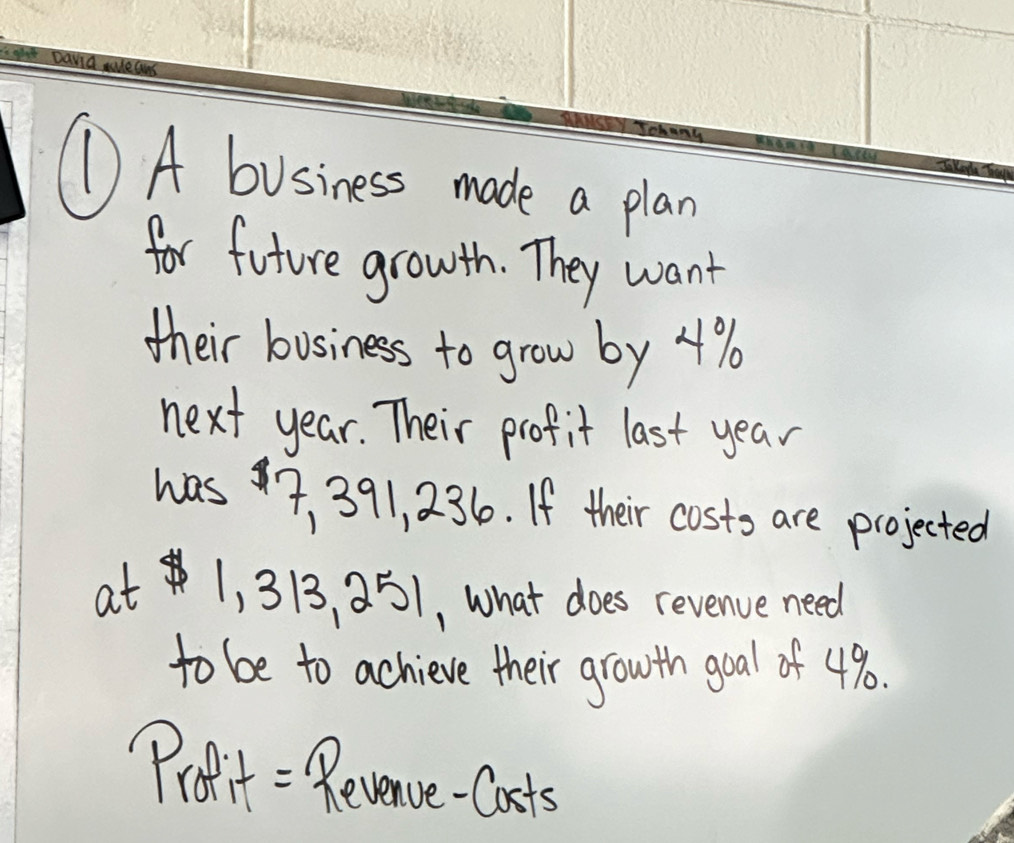 David
RAMSEY Johnny
① A business made a plan
for future growth. They want
their business to grow by 4%
next year. Their profit last year
was $7,391,236. If their costs are projected
at $1,313,251, what does revenue need
to be to achieve their growth goal of 4%.
Profit = Revenue - Costs